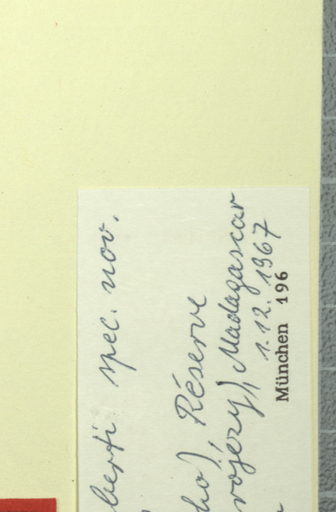 berti spec. nov.
ho), Réserve
rojezy), Madagascar
1.12.1967
München 196